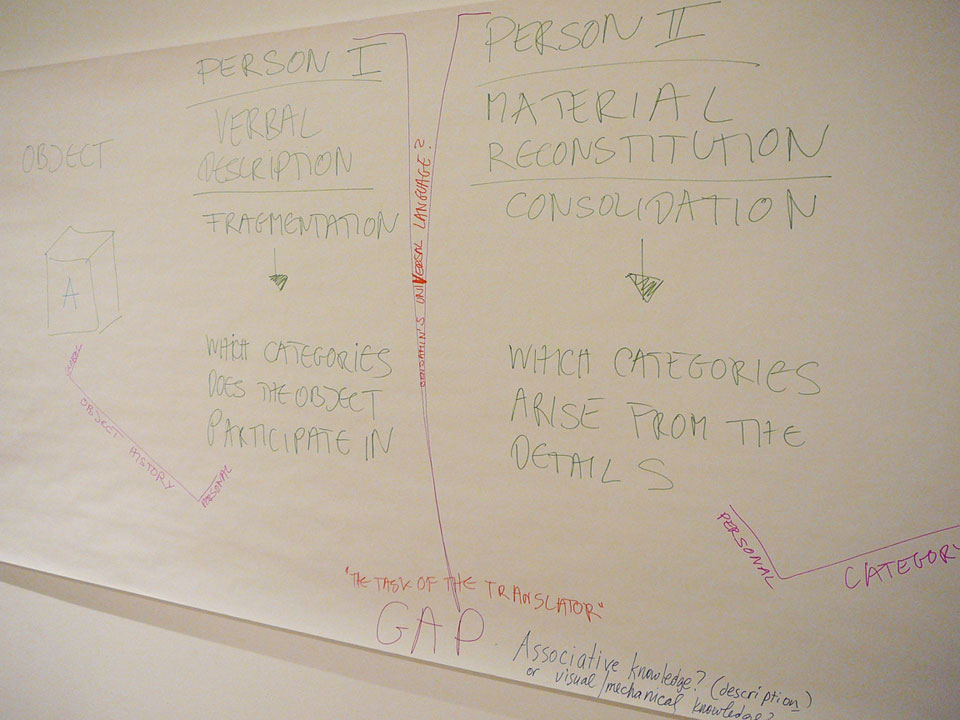 OBJECT
A
OBJECT HISTORY
PERSONAL
PERSON I
VERBAL
DESCRIPTION
FRAGMENTATION
WHICH CATEGORIES
DOES THE OBJECT
PARTICIPATE IN
BENJAMIN'S UNIVERSAL LANGUAGE?
PERSON II
MATERIAL
RECONSTITUTION
CONSOLIDATION
WHICH CATEGORIES
ARISE FROM THE
DETAILS
PERSONAL
CATEGORY
"THE TASK OF THE TRANSLATOR"
GAP
Associative knowledge? (description)
or visual/mechanical knowledge?